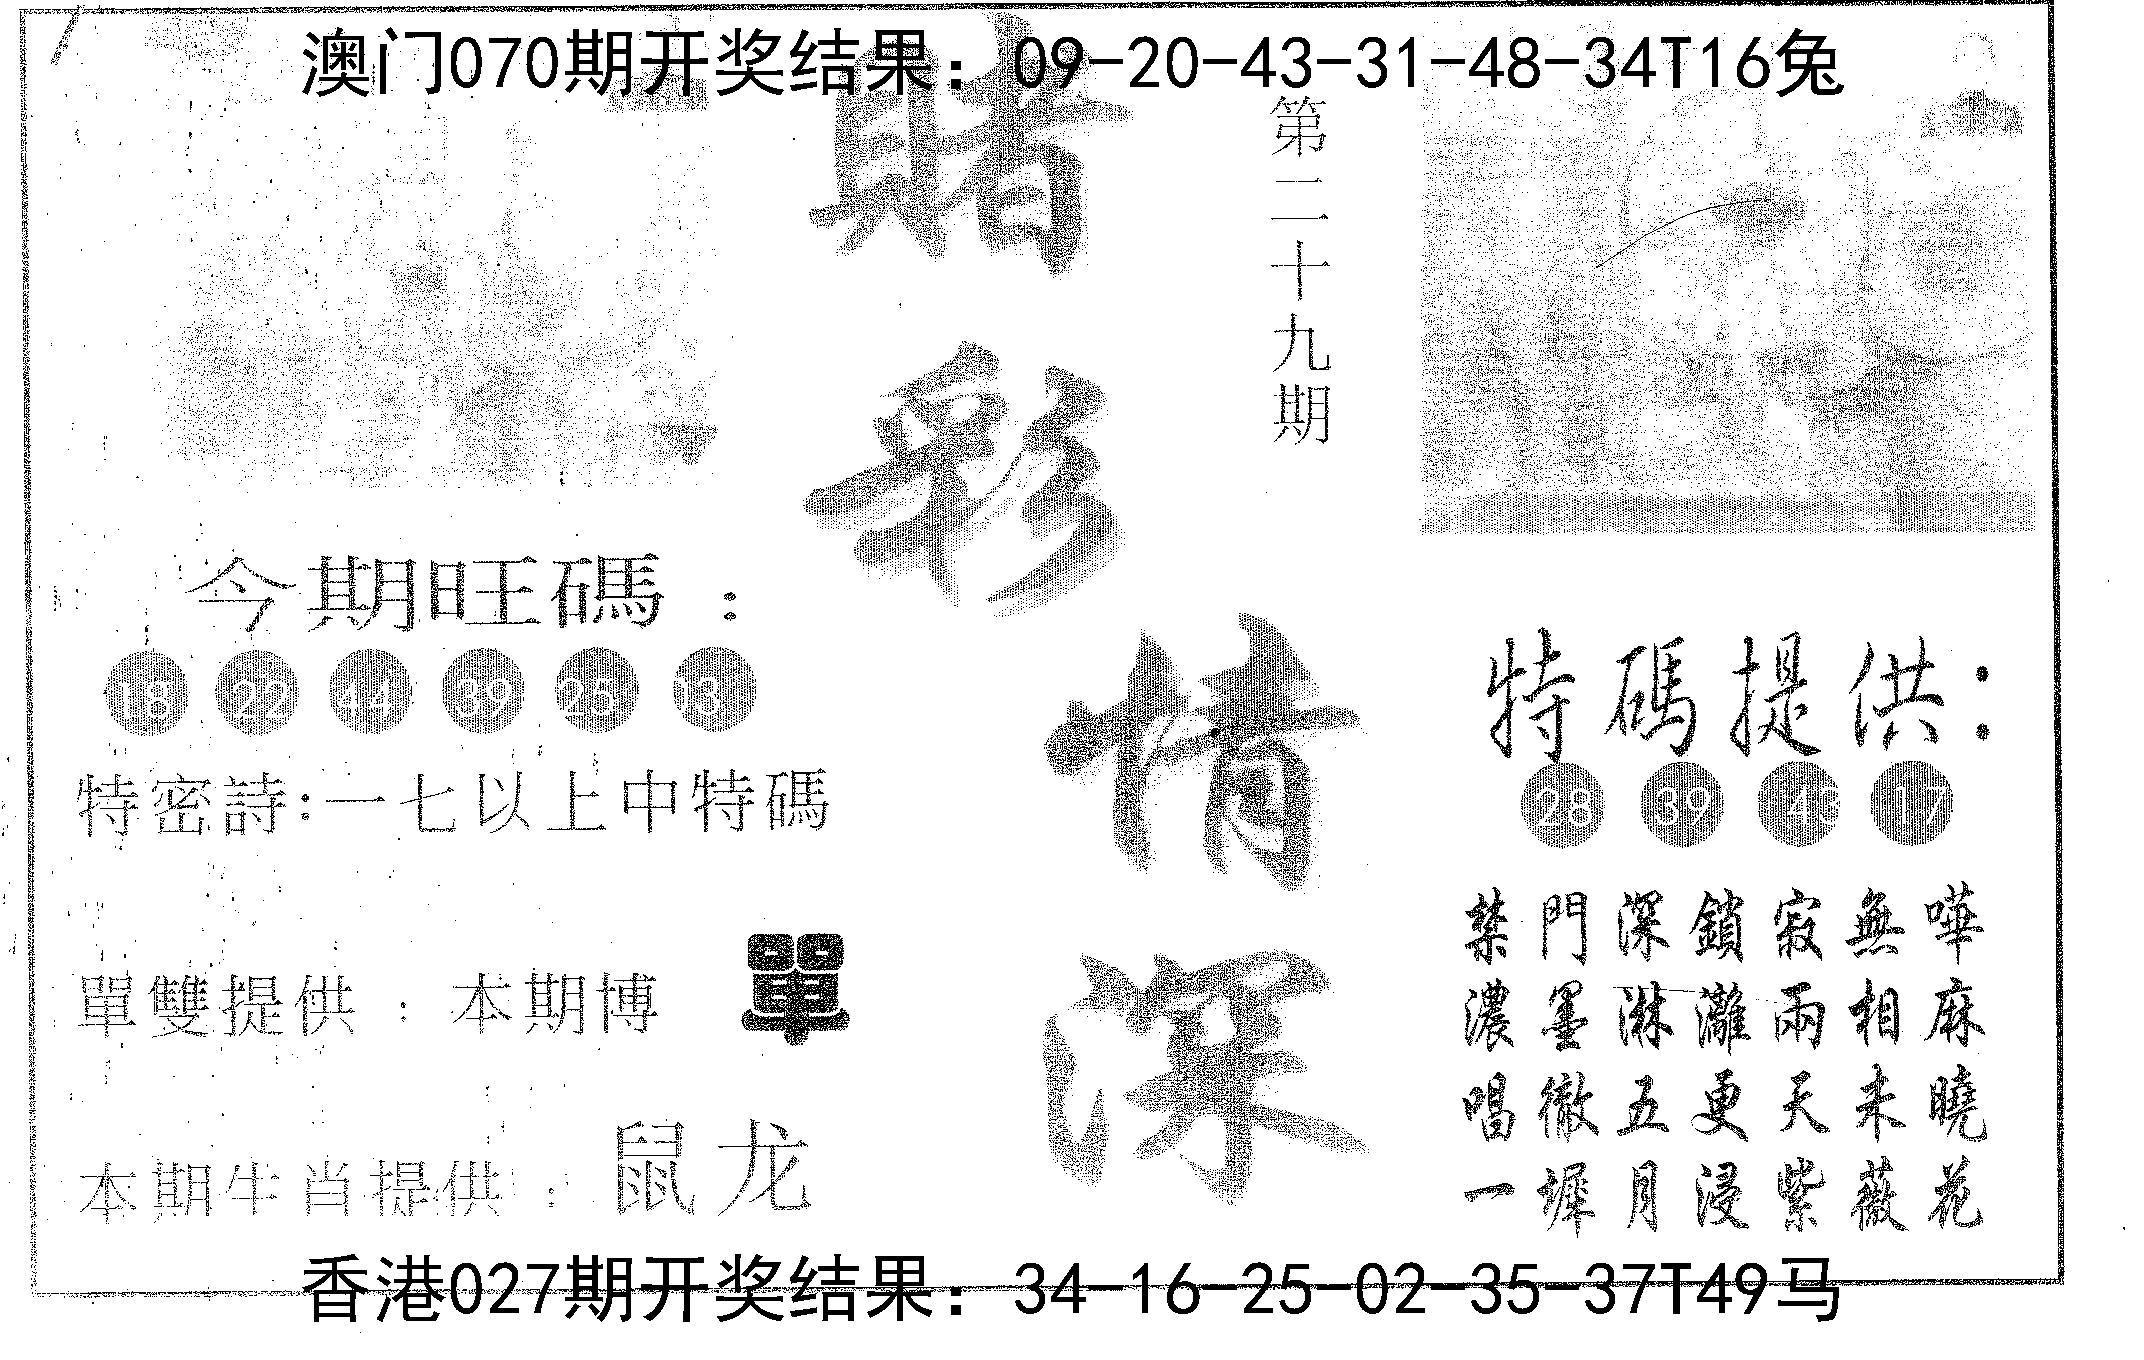 澳门070期开奖结果：09-20-43-31-48-34T16兔
賭彩情深
第二十九期
今期旺碼：
18 22 44 39 25 03
特密詩:一七以上中特碼
單雙提供：本期博 單
本期生肖提供：鼠龙
特碼提供：
28 39 43 17
禁門深鎖寂無嘩
濃墨淋灕兩相麻
唱徹五更天未曉
一墀月浸紫薇花
香港027期开奖结果：34-16-25-02-35-37T49马